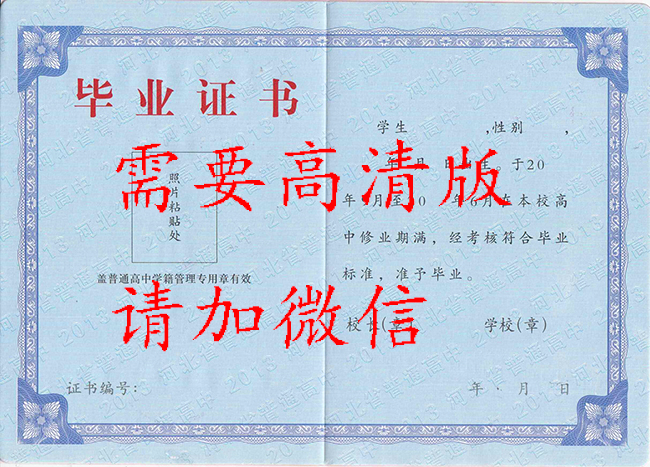 毕业证书
照片粘贴处
盖普通高中学籍管理专用章有效
证书编号:
学生 ,性别 ,
年 月 日 生,于20
年9月至20 年6月在本校高
中修业期满，经考核符合毕业
标准，准予毕业。
校长(章) 学校(章)
年 月 日
需要高清版
请加微信